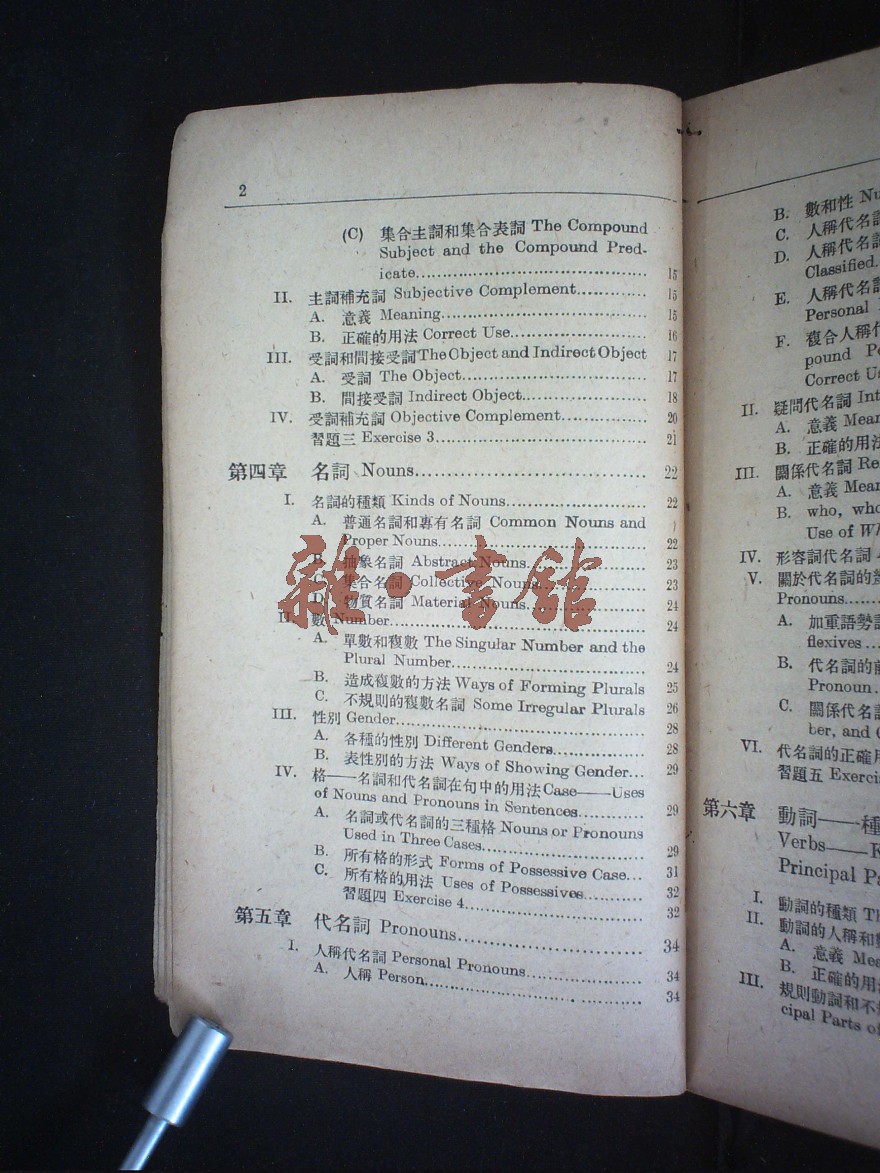 2
(C) 集合主詞和集合表詞 The Compound
Subject and the Compound Pred-
icate 15
II. 主詞補充詞 Subjective Complement 15
A. 意義 Meaning 15
B. 正確的用法 Correct Use 16
III. 受詞和間接受詞 The Object and Indirect Object 17
A. 受詞 The Object 17
B. 間接受詞 Indirect Object 18
IV. 受詞補充詞 Objective Complement 20
習題三 Exercise 3 21
第四章 名詞 Nouns 22
I. 名詞的種類 Kinds of Nouns 22
A. 普通名詞和專有名詞 Common Nouns and
Proper Nouns 22
B. 抽象名詞 Abstract Nouns 23
C. 集合名詞 Collective Nouns 23
D. 物質名詞 Material Nouns 24
II. 數 Number 24
A. 單數和複數 The Singular Number and the
Plural Number 24
B. 造成複數的方法 Ways of Forming Plurals 25
C. 不規則的複數名詞 Some Irregular Plurals 26
III. 性別 Gender 28
A. 各種的性別 Different Genders 28
B. 表性別的方法 Ways of Showing Gender... 29
IV. 格——名詞和代名詞在句中的用法 Case——Uses
of Nouns and Pronouns in Sentences 29
A. 名詞或代名詞的三種格 Nouns or Pronouns
Used in Three Cases 29
B. 所有格的形式 Forms of Possessive Case... 31
C. 所有格的用法 Uses of Possessives 32
習題四 Exercise 4 32
第五章 代名詞 Pronouns 34
I. 人稱代名詞 Personal Pronouns 34
A. 人稱 Person 34
雜·書館
B. 數和性
C. 人稱代名
D. 人稱代名
Classified.
E. 人稱代名
Personal
F. 複合人稱
pound
Correct
II. 疑問代名詞
A. 意義
B. 正確的用
III. 關係代名詞
A. 意義
B. who,
Use of
IV. 形容詞代名詞
V. 關於代名詞的
Pronouns
A. 加重語勢
flexives...
B. 代名詞的
Pronoun
C. 關係代名
ber, and
VI. 代名詞的正確
習題五
第六章 動詞——
Verbs——
Principal
I. 動詞的種類
II. 動詞的人稱和
A. 意義
B. 正確的用
III. 規則動詞和不
cipal Parts of